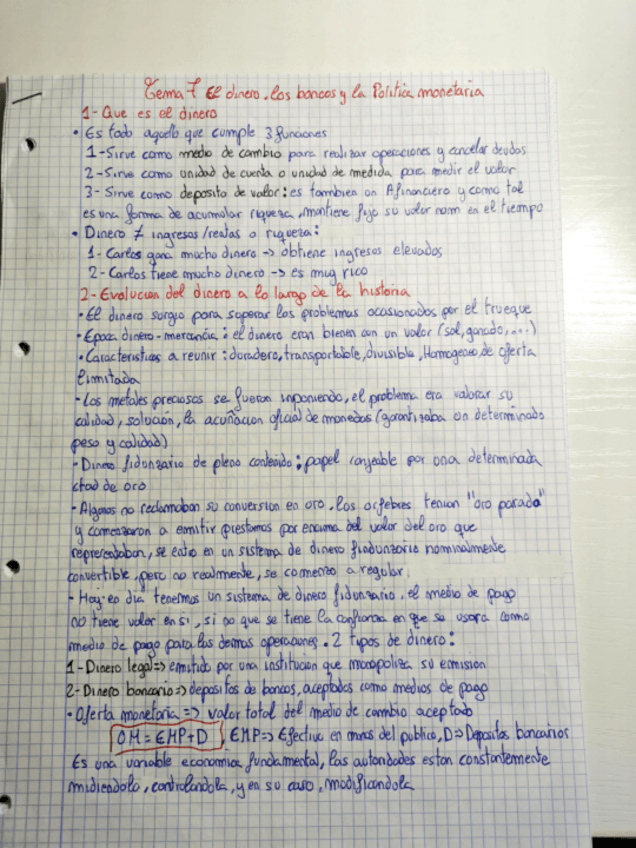 Tema 7 El dinero, los bancos y la Politica monetaria
1- Que es el dinero
• Es todo aquello que cumple 3 funciones
1-Sirve como medio de cambio para realizar operaciones y cancelar deudas
2-Sirve como unidad de cuenta o unidad de medida para medir el valor
3- Sirve como deposito de valor: es tambien un Afinanciero y como tal
es una forma de acumular riqueza, mantiene fijo su valor nom en el tiempo
• Dinero ≠ ingresos/rentas o riqueza:
1- Carlos gana mucho dinero -> obtiene ingresos elevados
2- Carlos tiene mucho dinero -> es muy rico
2-Evolucion del dinero a lo largo de la historia
• El dinero surgio para superar los problemas ocasionados por el trueque
• Epoca dinero-mercancia: el dinero eran bienes con un valor (sal, ganado,...)
• Caracteristicas a reunir: duradero, transportable, divisible, Homogeneo de oferta
limitada
- Los metales preciosos se fueron imponiendo, el problema era valorar su
calidad, solución, la acuñacion oficial de monedas (garantizaba un determinado
peso y calidad)
- Dinero fidunzario de pleno contenido: papel canjeable por una determinada
ctad de oro
- Algunos no reclamaban su conversion en oro. Los orfebres tenian "oro parado"
y comenzaron a emitir prestamos por encima del valor del oro que
representaban, se entro en un sistema de dinero fidunzario nominalmente
convertible, pero no realmente, se comenzo a regular.
- Hoy en dia tenemos un sistema de dinero fidunzario, el medio de pago
no tiene valor en si, si no que se tiene la confianza en que se usara como
medio de pago para las demas operaciones. 2 tipos de dinero:
1-Dinero legal=> emitido por una institucion que monopoliza su emision
2-Dinero bancario=> depositos de bancos, aceptados como medios de pago
• Oferta monetaria => valor total del medio de cambio aceptado
OM = EMP + D, EMP=> Efectivo en manos del publico, D=> Depositos bancarios
Es una variable economica fundamental, las autoridades estan constantemente
midiendola, controlandola, y en su caso, modificandola